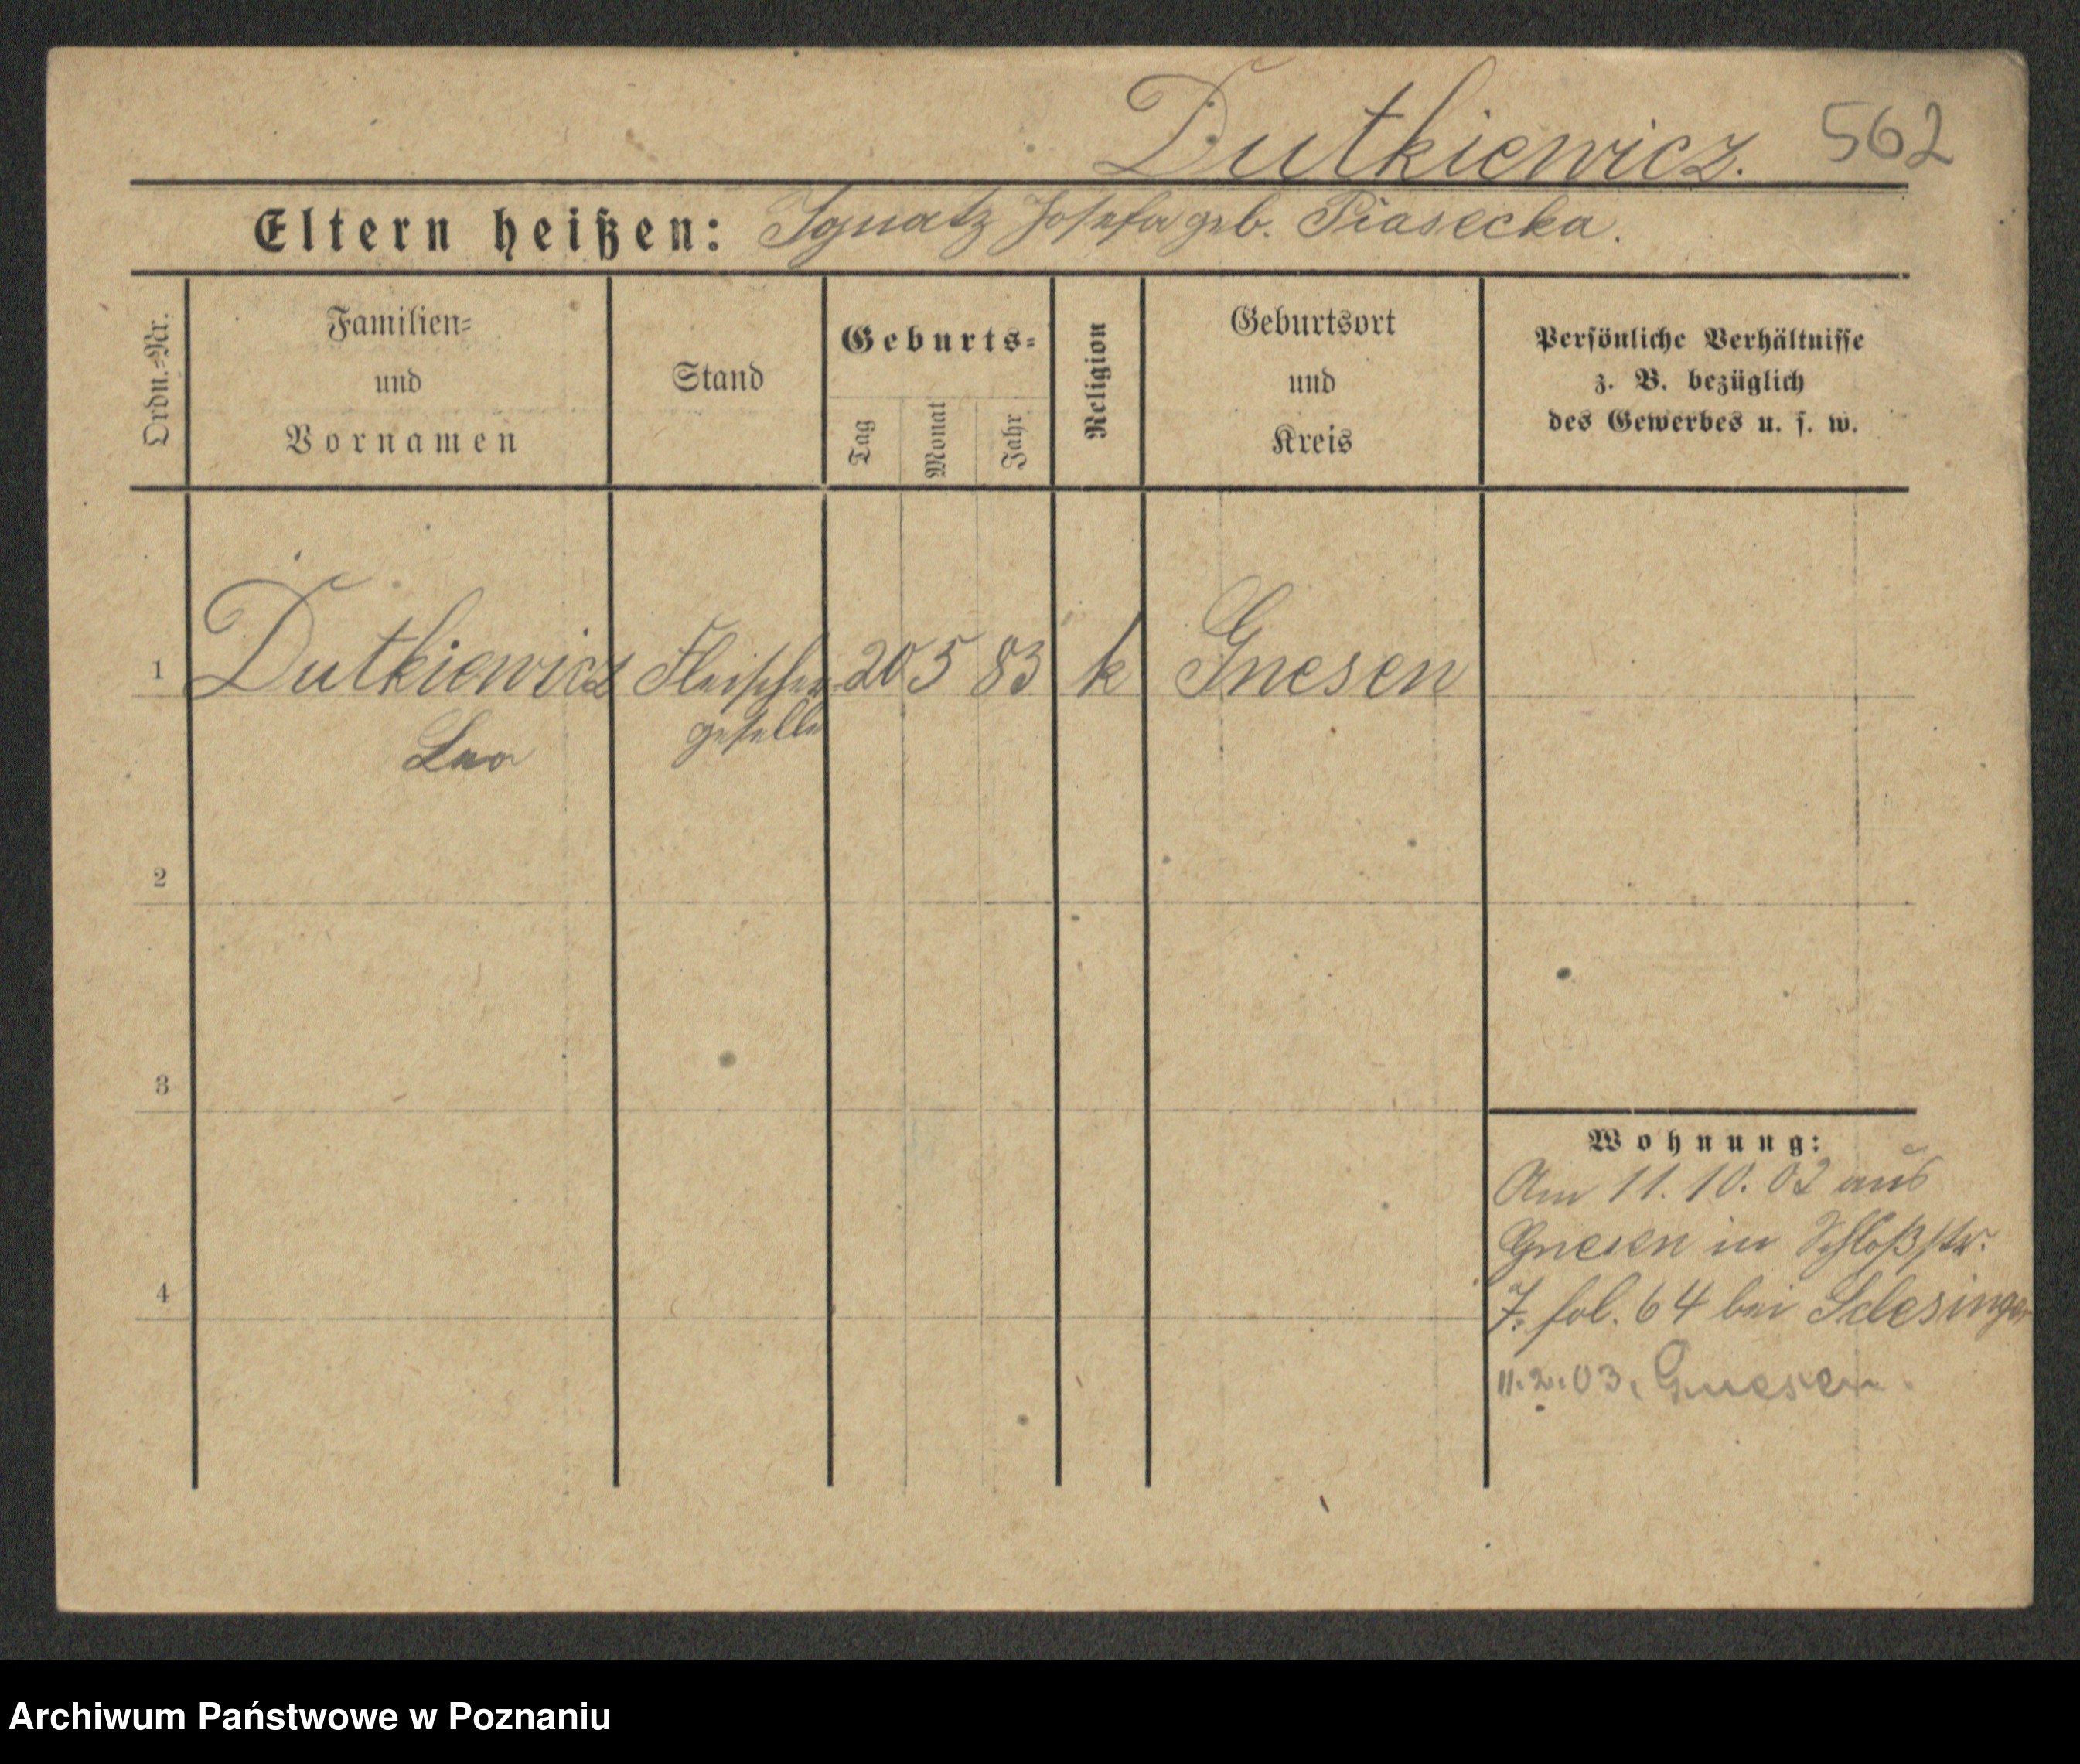 Dutkiewicz. 562
Eltern heißen: Ignatz Josefa geb. Piasecka.
Ordn.-Nr.
Familien-
und
Vornamen
Stand
Geburts-
Tag
Monat
Jahr
Religion
Geburtsort
und
Kreis
Persönliche Verhältnisse
z. B. bezüglich
des Gewerbes u. s. w.
1 Dutkiewicz Fleischer 20 5 83 k Gnesen
Leo geselle
2
3
Wohnung:
Am 11. 10. 02 aus
Gnesen in Schloßstr.
4
7. fol. 64 bei Schlesinger
11.2.03. Gnesen.
Archiwum Państwowe w Poznaniu